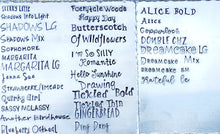 Shadows Info Light
SHADOWS LG
Shadows Mix
SOPHOMORE
MARGARITA
MARGARITA LG
Jenna Sue
Strawberry Limeade
Quirky Girl
SASSY MOLASSY
Another Birdhouse
Blueberry Oatmeal
Fairytale Woods
Happy Day
Butterscotch
Of Wildflowers
I'm So Silly
Romantic
Hello Sunshine
Drawing
Tickled Bold
Tickled Thin
GINGERBREAD
Ding Dong
ALICE BOLD
Alice
Copperlock
DOUBLE CHZ
DREAMCAKE LG
Dreamcake Mix
DREAMCAKE SM
Grateful